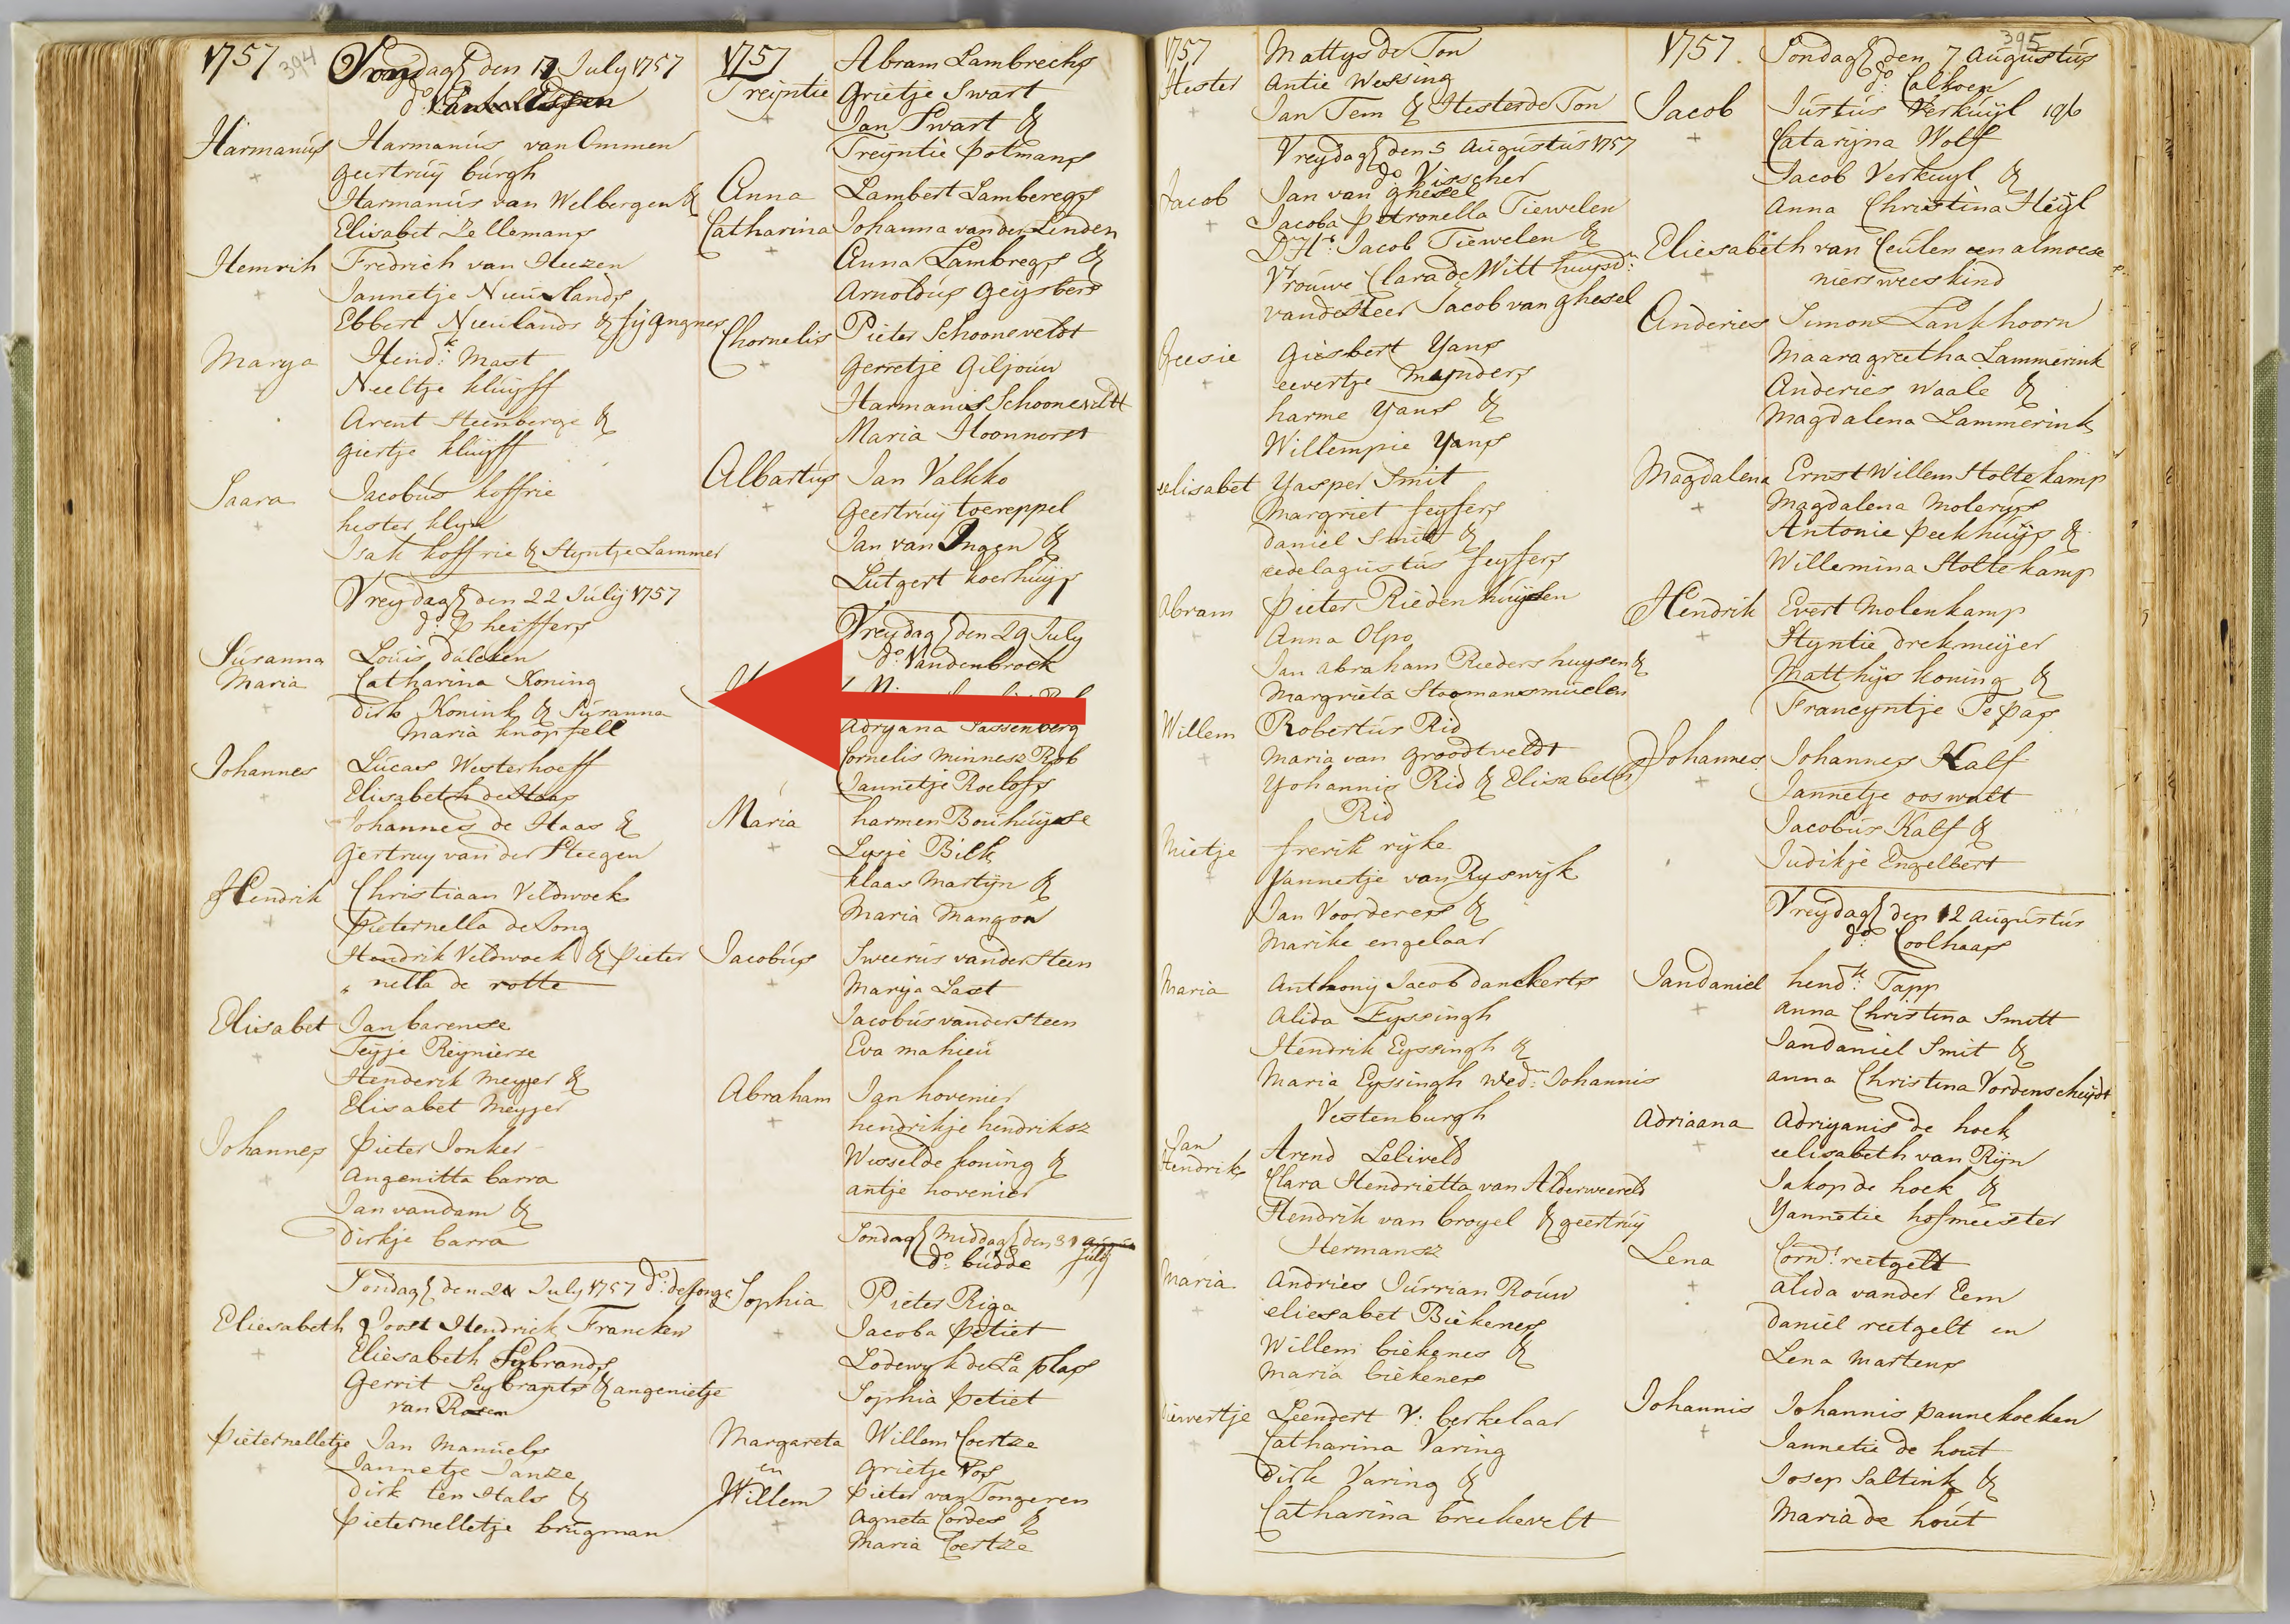 1757 394 Sondag den 17 July 1757
do
Harmanus Harmanus van Ommen
geertruy burgh
Harmanus van Welbergen &
Elisabet Zellemans
Hemrih Fredrich van Huzen
Jannetje Nieuwlands
Ebbert Nieulands & fijtjangnes
Marya Hendk Mast
Neeltje kluyff
Arent Steenberge &
giertje kluyff
Saara Jacobus koffrie
hester klyn
Isak koffrie & Styntje Lammer
Vreydag den 22 July 1757
do Pheiffers
Susanna Louis dulcken
Maria Catharina Koning
dirk Konink & Susanna
Maria knopfell
Johannes Lucas Westerhoeff
Elisabeth de Haas
Johannes de Haas &
Gertruy van der Steegen
Hendrik Christiaan Veldwoek
Pieternella de Jong
Hendrik Veldwoek & Pieter
nella de rotte
Elisabet Jan barense
Teyje Reynierse
Henderik Meyjer &
Elisabet Meyjer
Johannes Pieter Jonker
Angenitta barra
Jan van dam &
Dirkje barra
Sondag den 24 July 1757 do de Jonge
Eliesabeth Joost Hendrick Francken
Eliesabeth Sybrands
Gerrit Seybrants & angenietje
van Rosen
Pieternelletje Jan Manuels
Jannetje Janze
dirk ten Hals &
Pieternelletje brugman
1757 Abram Lambrechs
Treijntie Grietje Swart
Jan Swart &
Treyntie potmans
Anna Lambert Lamberegs
Catharina Johanna van der Linden
Anna Lambregs &
Arnoldus Geysbers
Chornelis Pieter Schooneveldt
Gerretje Giljouw
Harmanis Schooneveldt
Maria Hoonnorst
Albartus Jan Valkko
Geertruy toereppel
Jan van Ingen &
Lutgert koerhuys
Vreydag den 29 July
do Vandenbroek
Adryana Sassenberg
Cornelis Minnesz Rob
Jannetje Roelofs
Maria harmen Bouhuyse
Lysje Bilk
klaas Martijn &
Maria Mangon
Jacobus Sweerus vander Steen
Marija Last
Jacobus vander Steen
Eva mahieu
Abraham Jan hovenier
hendrikje hendriksz
Wesselde koning &
antje hovenier
Sondag Middag den 31
do budde July
Sophia Pieter Riga
Jacoba Petiet
Lodewyk de La plas
Sophia Petiet
Margareta Willem Coertze
en Grietje Vos
Willem Pieter van Tongeren
Agneta Cordes &
Maria Coertze
1757 Mattys de Ton
Hester Antie Wessing
Jan Tem & Hester de Ton
Vreydag den 5 Augustus 1757
do Visscher
Jacob Jan van ghesel
Jacoba Petronella Tiewelen
D Hr Jacob Tiewelen &
Vrouwe Clara de Witt huysvr
van de Heer Jacob van ghesel
Geesie Giesbert Yans
eevertje Mynders
harme Yans &
Willempie Yans
eelisabet Yasper Smit
Margriet feyfers
Daniel Smit &
eedelagustus feyfers
Abram Pieter Riedenhuysen
Anna Olpo
Jan Abraham Riedershuysen &
Margrieta Stoomansmuelen
Willem Robertus Rid
Maria van grootveldt
Yohannis Rid & Elisabeth
Rid
Mietje frerik ryke
Jannetje van Ryswyk
Jan Voorderes &
Marike engelaar
Maria Anthony Jacob danckerts
Alida Eyssingh
Hendrik Eyssingh &
Maria Eyssingh Wedn: Johannis
Vestenburgh
Jan Arend Leliveld
Hendrik Clara Hendrietta van Alderweereld
Hendrik van broyel & geertruy
Hermansz
Maria Andries Jurrian Rouw
eliesabet Biekenes
Willem biekenes &
Maria biekenes
Leendert V: berkelaar
Catharina Varing
Dirk Varing &
Catharina breekevelt
1757 395 Sondag den 7 Augustus
do Calkoen
Jacob Justus Verkuyl
Catarijna Wolf
Jacob Verkuyl &
Anna Christina Heyl
Eliesabeth van Ceulen een almoese
niers weeskind
Anderies Simon Lankhoorn
Maaragreetha Lammerink
Anderies Waale &
Magdalena Lammerink
Magdalena Ernst Willem Holtekamp
Magdalena Molerus
Antonie Peekhuys &
Willemina Holtekamp
Hendrik Evert Molenkamp
Styntie drekmeijer
Matthys koning &
Francyntje Te pas
Johannes Johannes Kalf
Jannetje ooswalt
Jacobus Kalf &
Judikje Engelbert
Vreydag den 12 Augustus
do: Coolhaas
Jandaniel hendk: Tapp
Anna Christina Smitt
Jandaniel Smit &
anna Christina Vordenscheydt
Adriaana Adriyanis de hoek
eelisabeth van Rijn
Jakop de hoek &
Yannetie hofmeester
Lena Cornd: reetgelt
alida vander Eem
Daniel reetgelt en
Lena Martens
Johannis Johannis Pannekoeken
Jannetie de hout
Josep Saltink &
Maria de hout